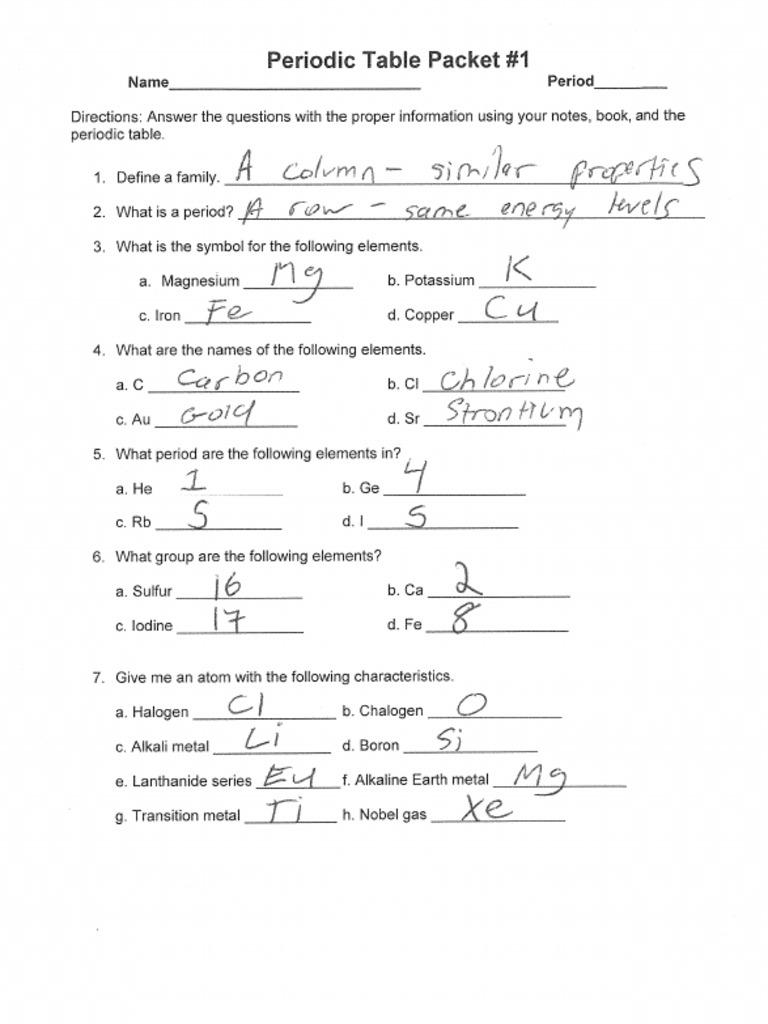 Periodic Table Packet #1
Name Period
Directions: Answer the questions with the proper information using your notes, book, and the
periodic table.
1. Define a family. A column - similar properties
2. What is a period? A row - same energy levels
3. What is the symbol for the following elements.
a. Magnesium Mg b. Potassium K
c. Iron Fe d. Copper Cu
4. What are the names of the following elements.
a. C Carbon b. Cl Chlorine
c. Au Gold d. Sr Strontium
5. What period are the following elements in?
a. He 1 b. Ge 4
c. Rb 5 d. I 5
6. What group are the following elements?
a. Sulfur 16 b. Ca 2
c. Iodine 17 d. Fe 8
7. Give me an atom with the following characteristics.
a. Halogen Cl b. Chalogen O
c. Alkali metal Li d. Boron Si
e. Lanthanide series Eu f. Alkaline Earth metal Mg
g. Transition metal Ti h. Nobel gas Xe